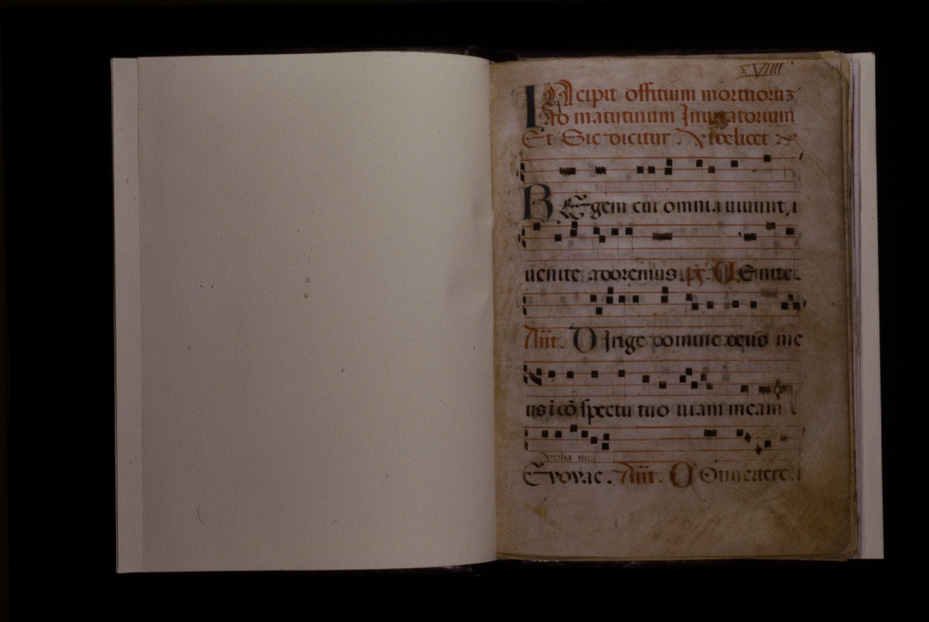 XVIIII
INcipit offitium mortuorūȝ
Ad matutinum Inuitatorium
Et Sic dicitur Videlicet
REgem cui omnia uiuunt, i
uenite adoremus. ps. Venite.
Añt. Dirige domine deus me
us i cō spectu tuo uiam meam
Verba mea
Evovae. Añt. Conuertere.